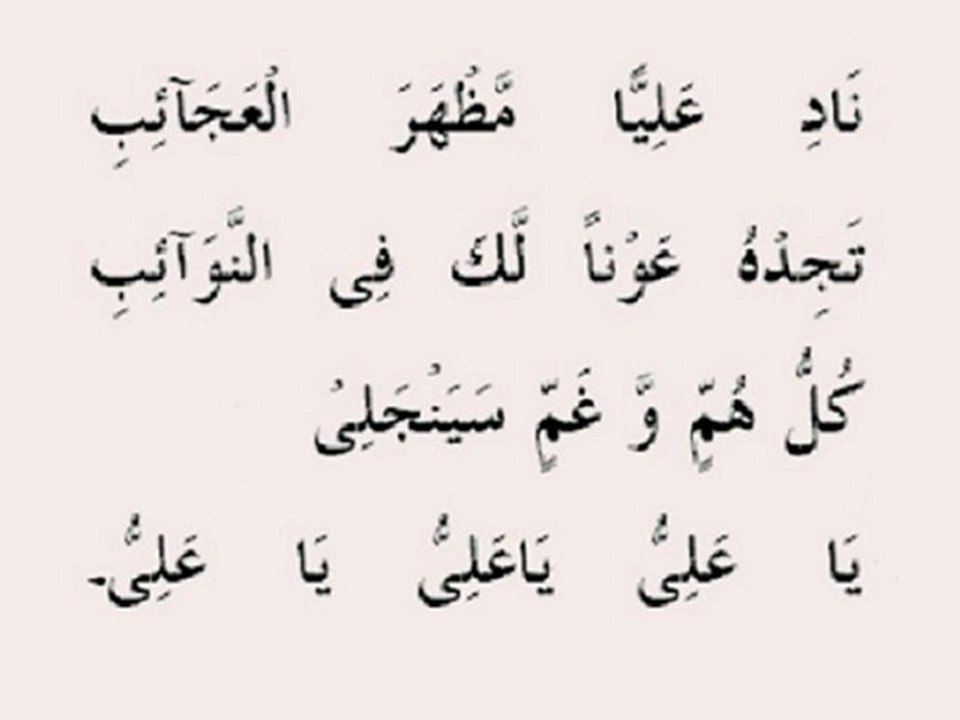 نَادِ عَلِيًّا مَّظْهَرَ الْعَجَآئِبِ
تَجِدْهُ عَوْناً لَّكَ فِى النَّوَآئِبِ
كُلُّ هُمٍّ وَّ غَمٍّ سَيَنْجَلِىْ
يَا عَلِىُّ يَاعَلِىُّ يَا عَلِىُّ۔